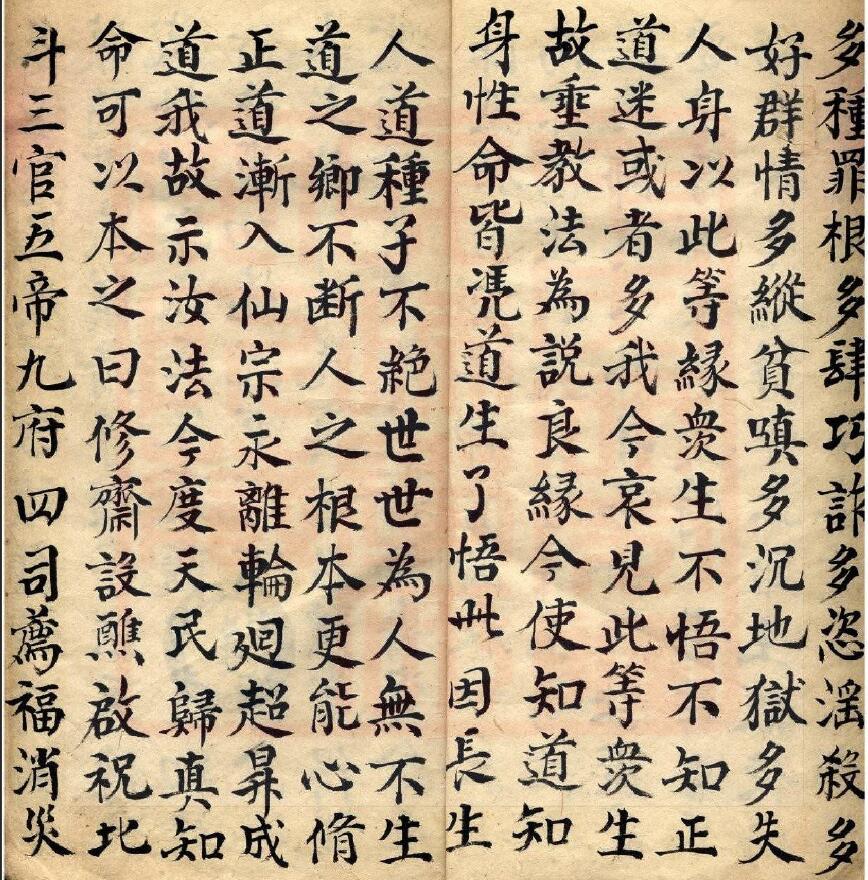 多種罪根多肆巧詐多恣淫殺多
好群情多縱貧嗔多沉地獄多失
人身以此等緣衆生不悟不知正
道迷或者多我今哀見此等衆生
故垂教法為說良緣令使知道知
身性命皆憑道生了悟此因長生
人道種子不絕世世為人無不生
道之鄉不断人之根本更能心脩
正道漸入仙宗永離輪廻超昇成
道我故示汝法令度天民歸真知
命可以本之曰修齋設醮啟祝北
斗三官五帝九府四司薦福消災